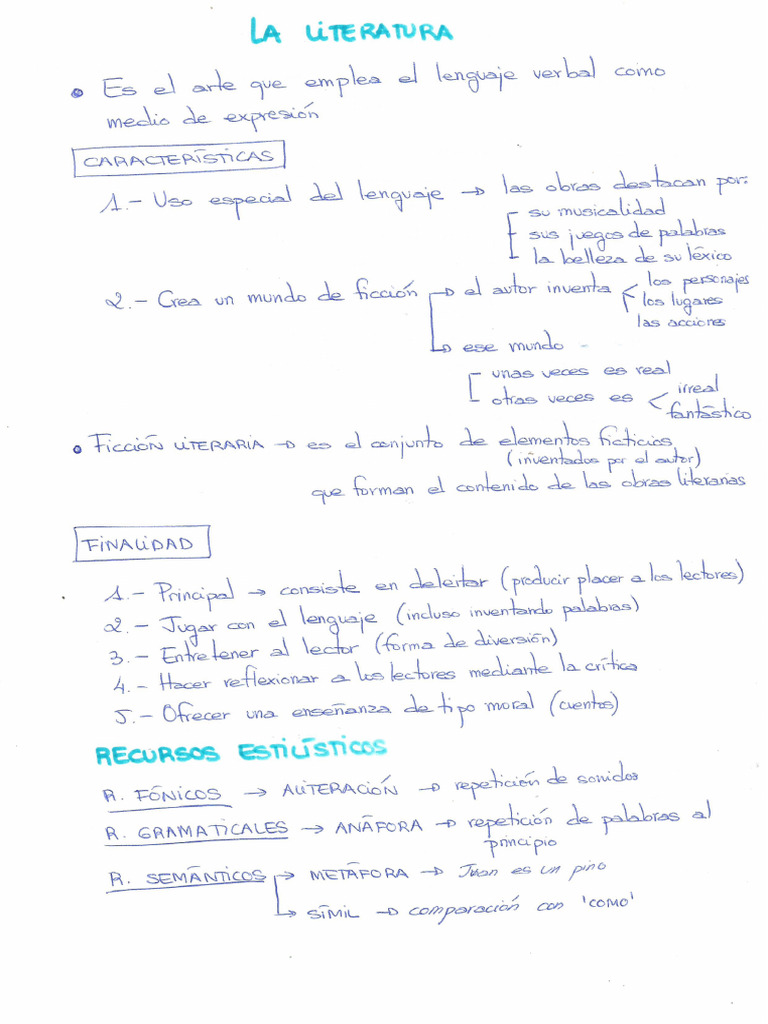 LA LITERATURA
• Es el arte que emplea el lenguaje verbal como
medio de expresión
CARACTERÍSTICAS
1.- Uso especial del lenguaje → las obras destacan por:
su musicalidad
sus juegos de palabras
la belleza de su léxico
2.- Crea un mundo de ficción → el autor inventa < los personajes
los lugares
las acciones
→ ese mundo
unas veces es real
otras veces es < irreal
fantástico
• FICCIÓN LITERARIA → es el conjunto de elementos ficticios
(inventados por el autor)
que forman el contenido de las obras literarias
FINALIDAD
1.- Principal → consiste en deleitar (producir placer a los lectores)
2.- Jugar con el lenguaje (incluso inventando palabras)
3.- Entretener al lector (forma de diversión)
4.- Hacer reflexionar a los lectores mediante la crítica
5.- Ofrecer una enseñanza de tipo moral (cuentos)
RECURSOS ESTILÍSTICOS
R. FÓNICOS → ALITERACIÓN → repetición de sonidos
R. GRAMATICALES → ANÁFORA → repetición de palabras al
principio
R. SEMÁNTICOS → METÁFORA → Juan es un pino
→ SÍMIL → comparación con 'como'